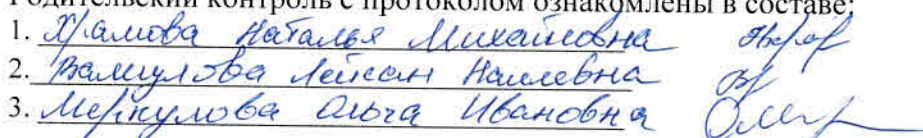 Родительский контроль с протоколом ознакомлены в составе:
1. Храмова Наталья Михайловна
2. Валиулова Лейсан Наилевна
3. Меркулова Ольга Ивановна